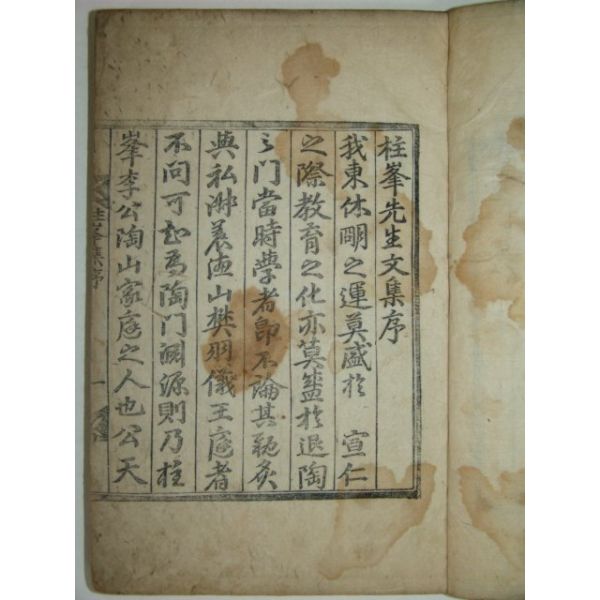 柱峯先生文集序
我東休明之運莫盛於 宣仁
之際敎育之化亦莫盛於退陶
之門當時學者卽不論其親炙
與私淑羞德山樊羽儀王庭者
不問可知爲陶門淵源則乃柱
峯李公陶山家庭之人也公天
柱峯集序
一